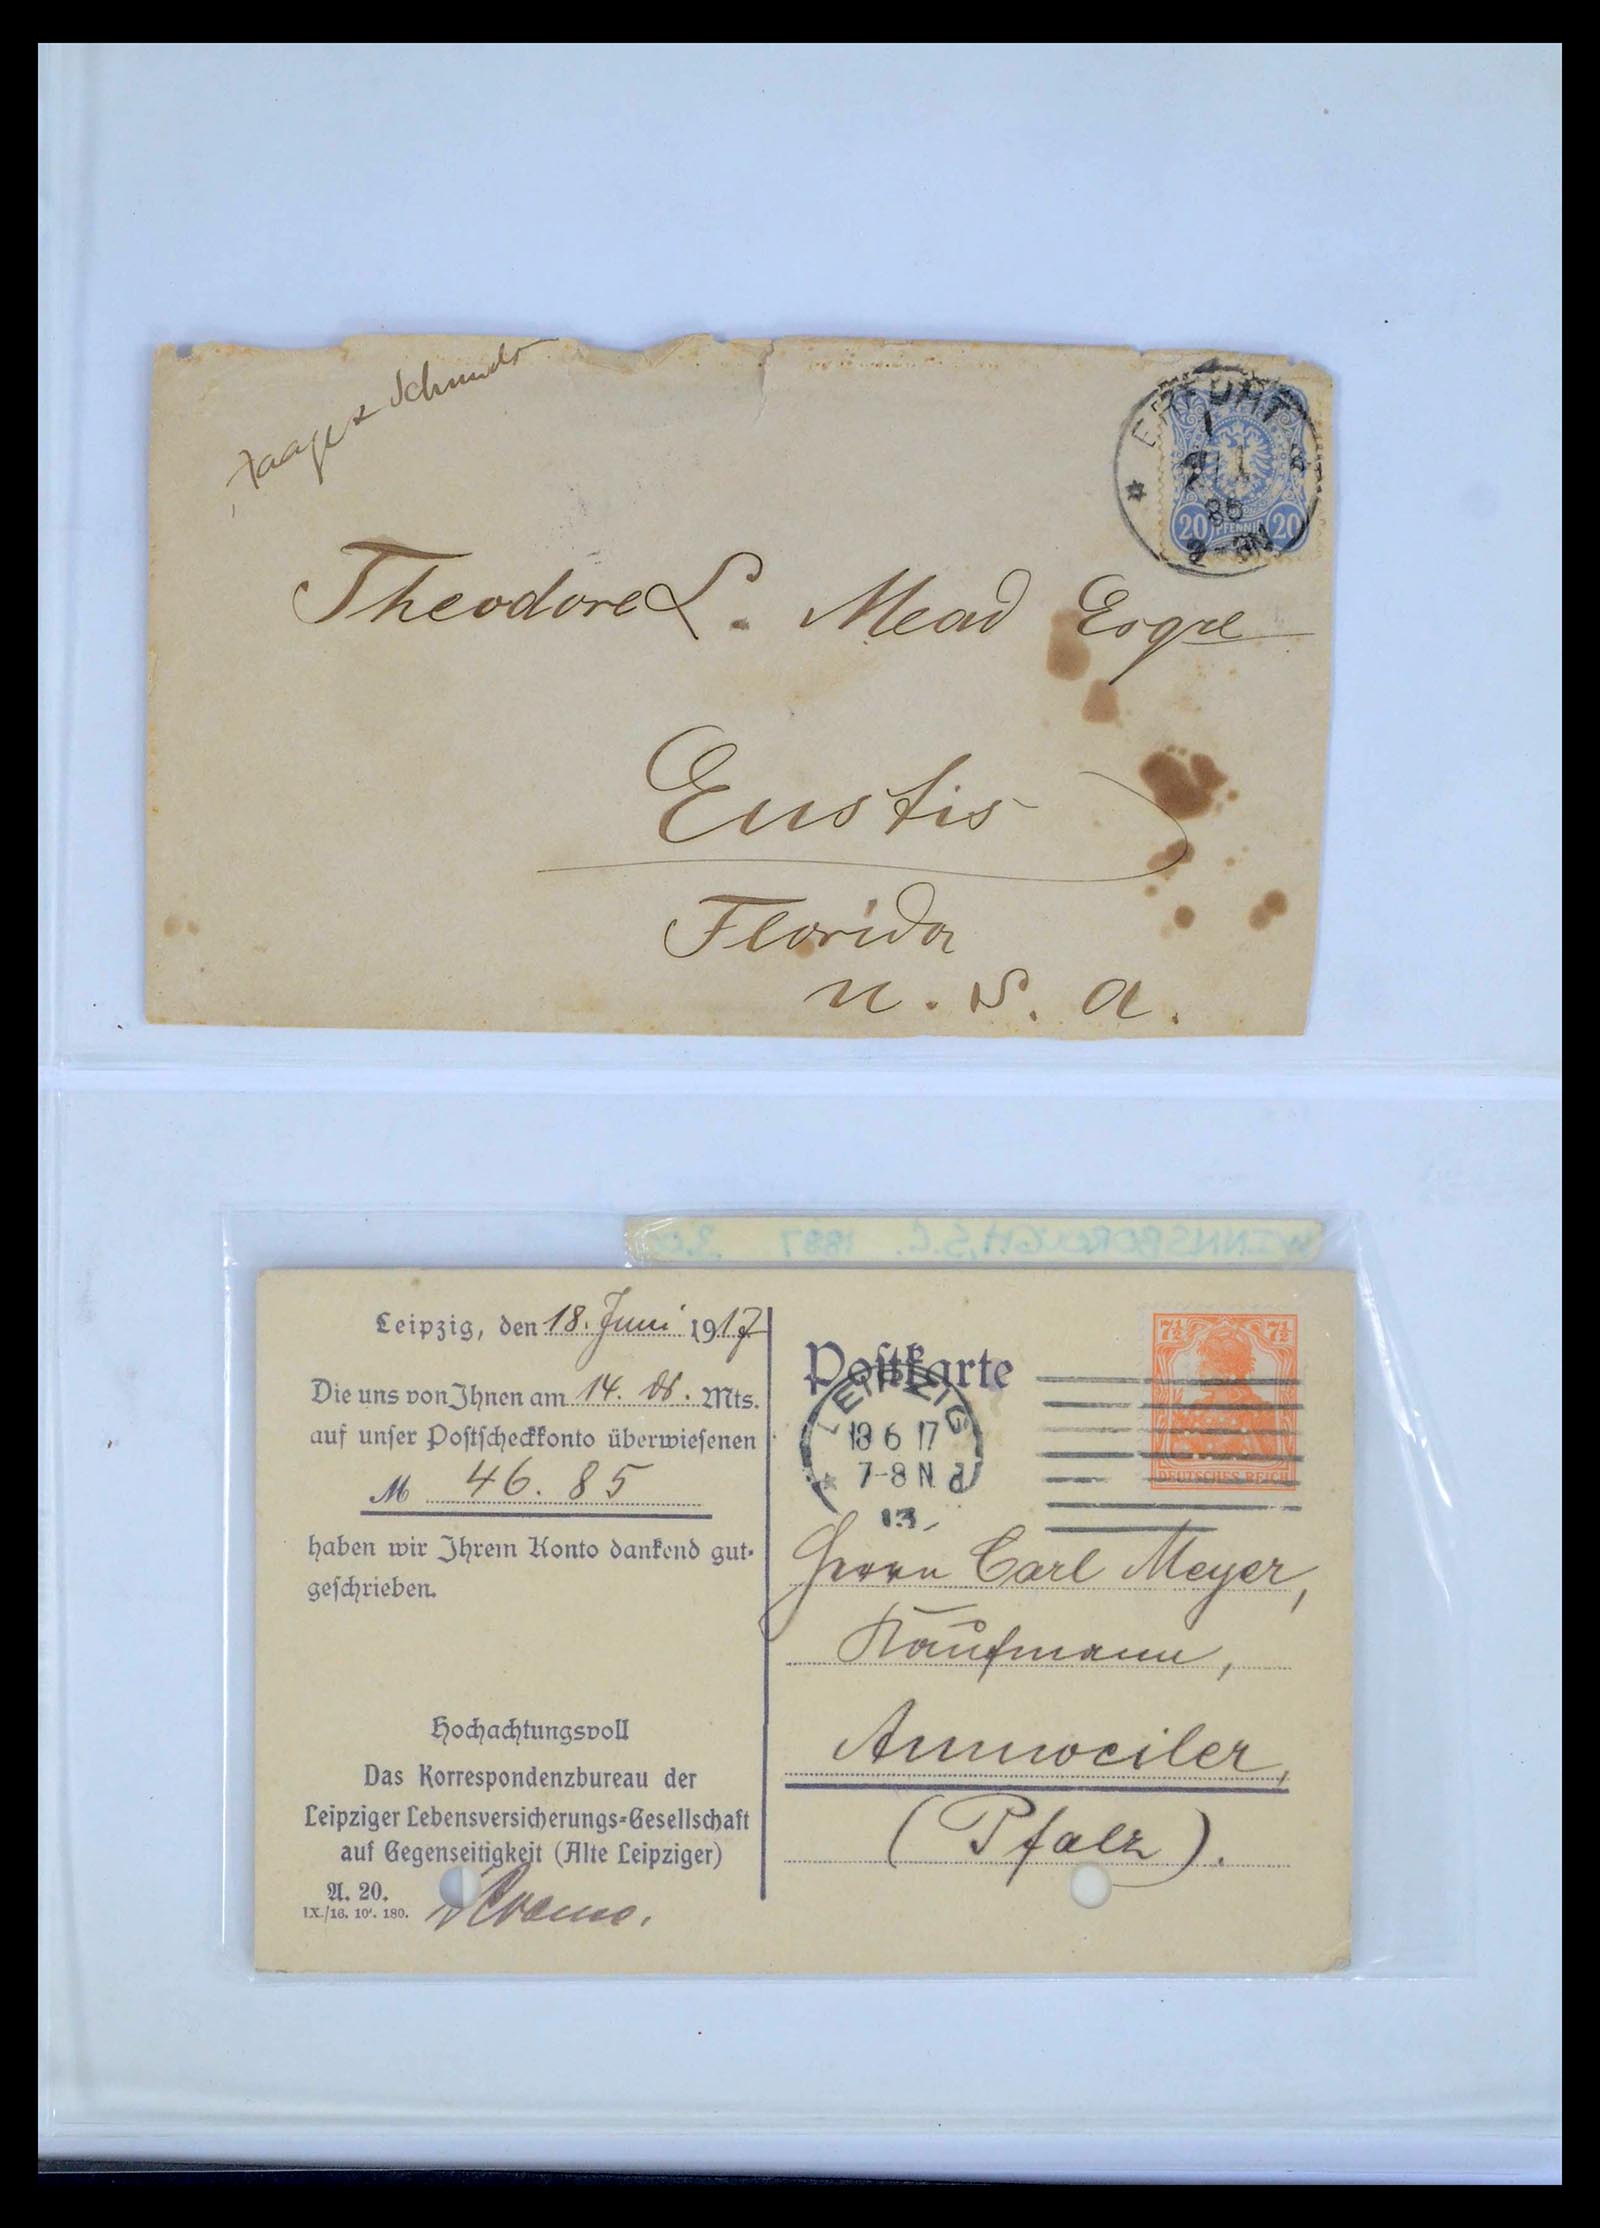 Haage & Schmidt
ERFURT
86
2-3N
20 PFENNIG 20
Theodore L. Mead Esqre
Eustis
Florida
U. S. A.
WINNSBOROUGH, S.C. 1887
Leipzig, den 18. Juni 1917
Die uns von Ihnen am 14. ds. Mts.
auf unser Postscheckkonto überwiesenen
M 46.85
haben wir Ihrem Konto dankend gut-
geschrieben.
Hochachtungsvoll
Das Korrespondenzbureau der
Leipziger Lebensversicherungs-Gesellschaft
auf Gegenseitigkeit (Alte Leipziger)
A. 20.
IX./16. 10'. 180.
Postkarte
LEIPZIG
18 6 17
7-8 N.
13
d
7½ 7½
DEUTSCHES REICH
Herrn Carl Meyer,
Kaufmann,
Annweiler,
(Pfalz).